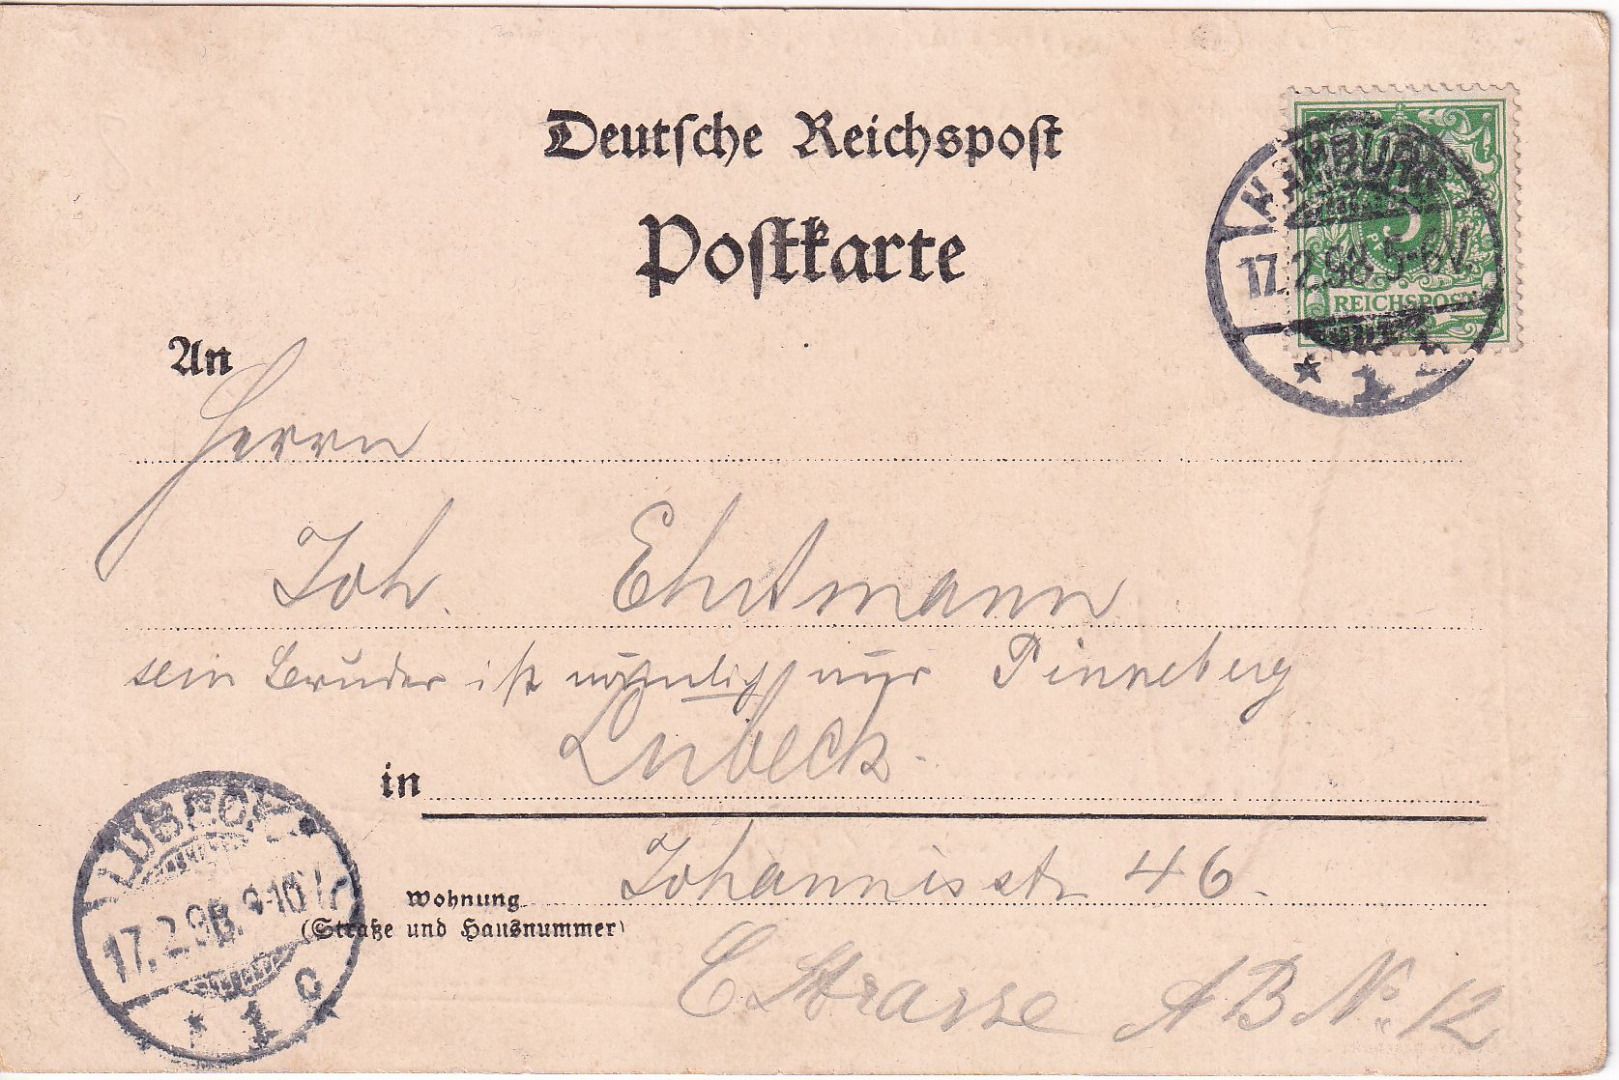 Deutsche Reichspost
Postkarte
HAMBURG
17.2.98.5-6V.
* 1
5
REICHSPOST
An
Herrn
Joh. Ehrtmann
sein Bruder ist nämlich nur Pinneberg
in Lübeck.
Wohnung Johannisstr 46.
(Straße und Hausnummer)
C Strasse AB No. 12
LÜBECK
17.2.98. 9-10V.
* 1 c